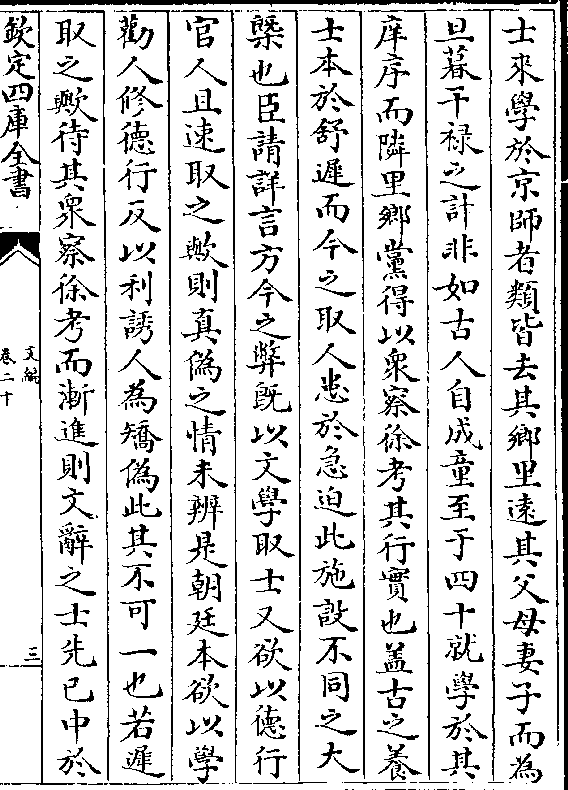 士來學於京師者類皆去其鄉里遠其父母妻子而為
旦暮干禄之計非如古人自成童至于四十就學於其
庠序而隣里鄉黨得以衆察徐考其行實也盖古之養
士本於舒遲而今之取人患於急迫此施設不同之大
槩也臣請詳言方今之弊既以文學取士又欲以德行
官人且速取之歟則真偽之情未辨是朝廷本欲以學
勸人修德行反以利誘人為矯偽此其不可一也若遲
取之歟待其衆察徐考而漸進則文辭之士先已中於
欽定四庫全書
文編
卷二十
三